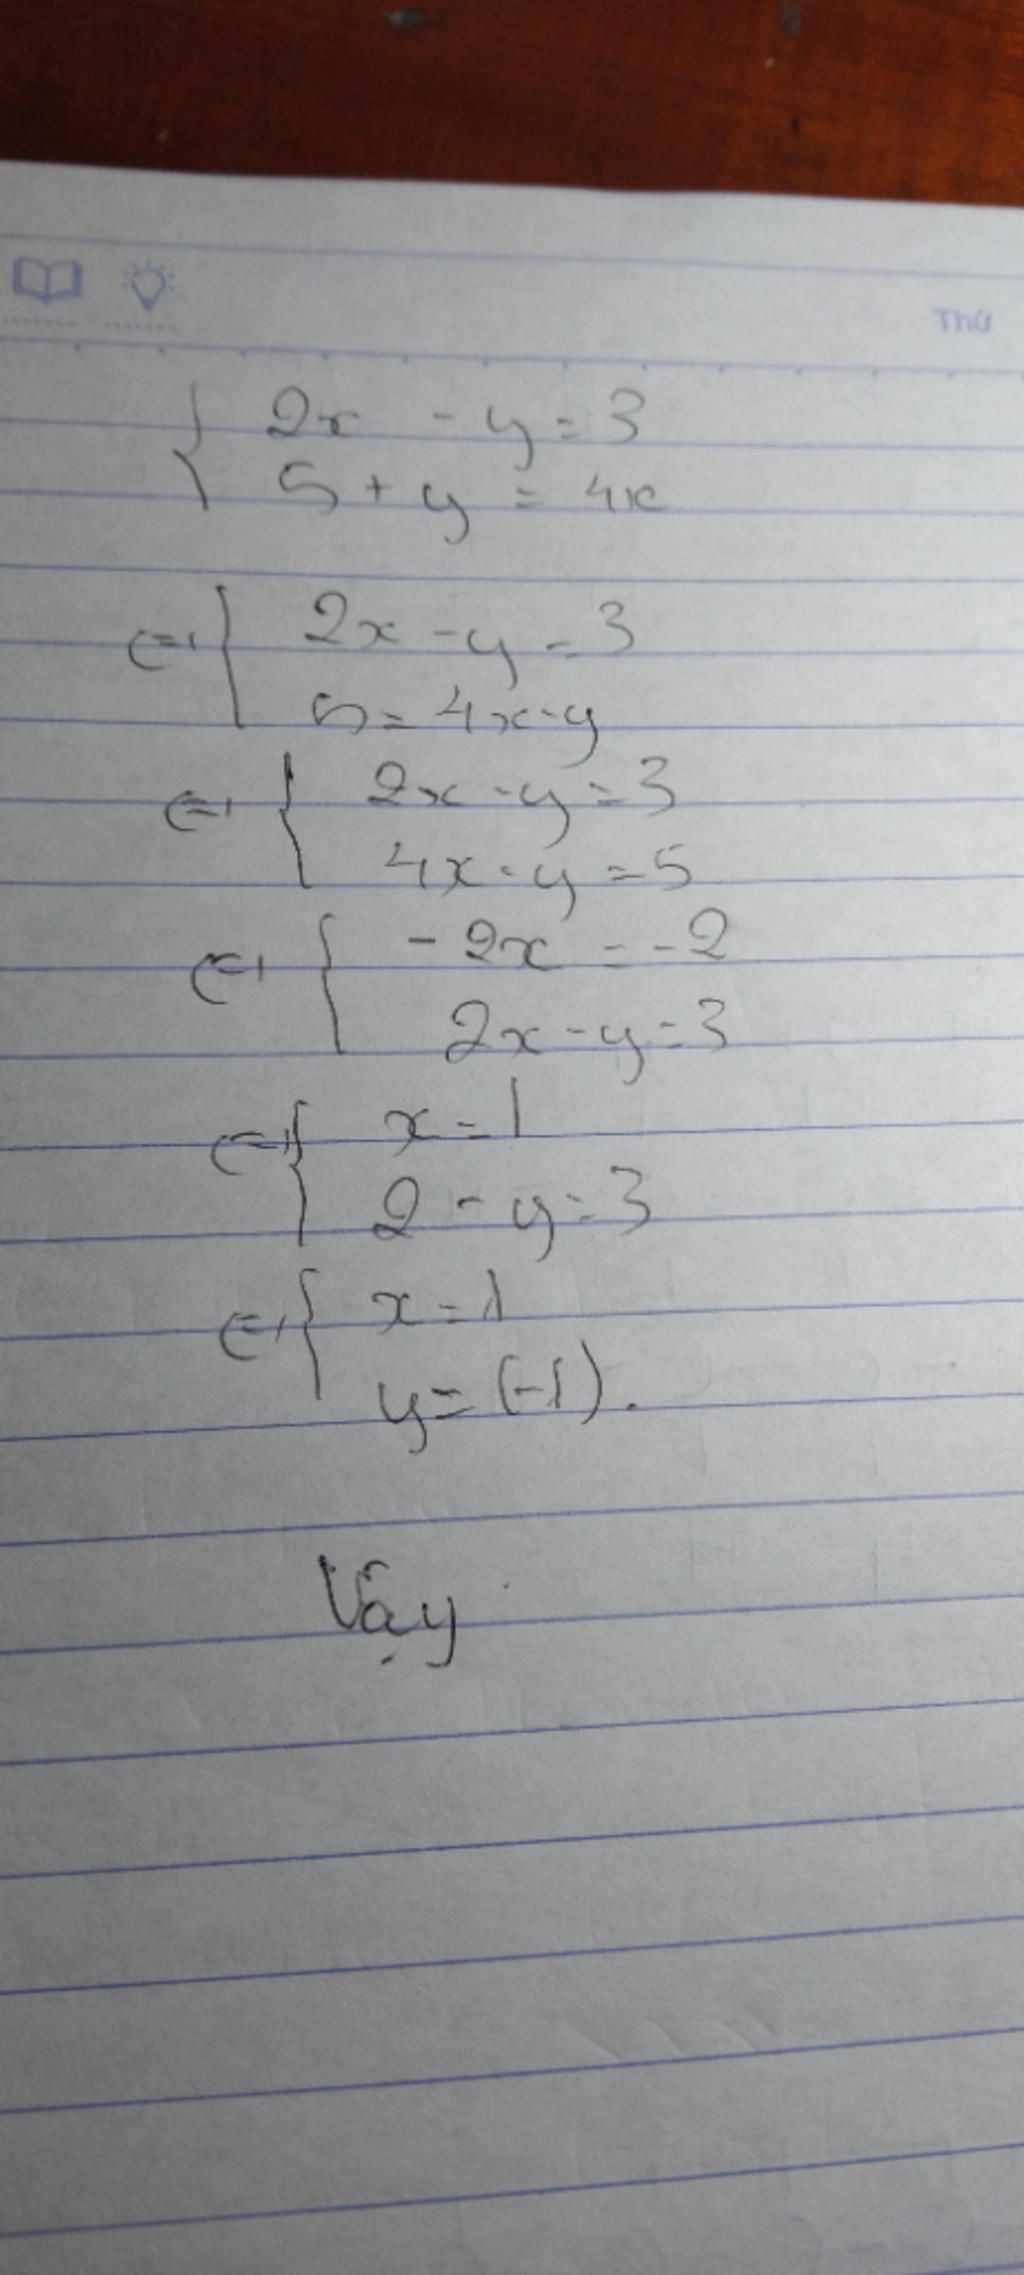 Thứ
{ 2x - y = 3
5 + y = 4x
<=> { 2x - y = 3
5 = 4x - y
<=> { 2x - y = 3
4x - y = 5
<=> { - 2x = -2
2x - y = 3
<=> { x = 1
2 - y = 3
<=> { x = 1
y = (-1).
Vậy